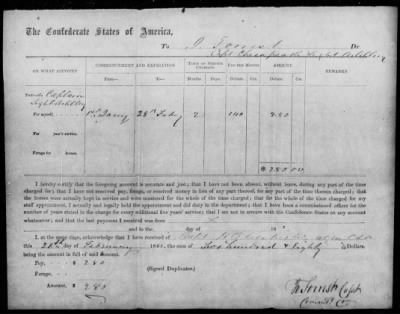 The Confederate States of America,
To
Chesapeake Light Artillery
Dr.
ON WHAT ACCOUNT
COMMENCEMENT AND EXPIRATION
TERM OF SERVICE CHARGED
PAY PER MONTH
AMOUNT
REMARKS
From—
To—
Months
Days
Dollars
Cts
Dollars
Cts
Captain
Light Artillery
For myself,
28th Feby
2
140
280
For year's service.
Forage for horses.
$280 00
I hereby certify that the foregoing account is accurate and just; that I have not been absent, without leave, during any part of the time
charged for; that I have not received pay, forage, or received money in lieu of any part thereof, for any part of the time therein charged; that the
horses were actually kept in service and were mustered for the whole of the time charged; that for the whole of the time charged for my
staff appointment, I actually and legally held the appointment and did duty in the department; that I have been a commissioned officer for the
number of years stated in the charge for every additional five years' service; that I am not in arrears with the Confederate States on any account
whatsoever; and that the last payment I received was from
and to the day of 18
I, at the same time, acknowledge that I have received of
this 28th day of February 186 , the sum of Two hundred & eighty Dollars.
being the amount in full of said account.
Pay, $ 280
(Signed Duplicates.)
Forage,
Amount, $ 280
Capt